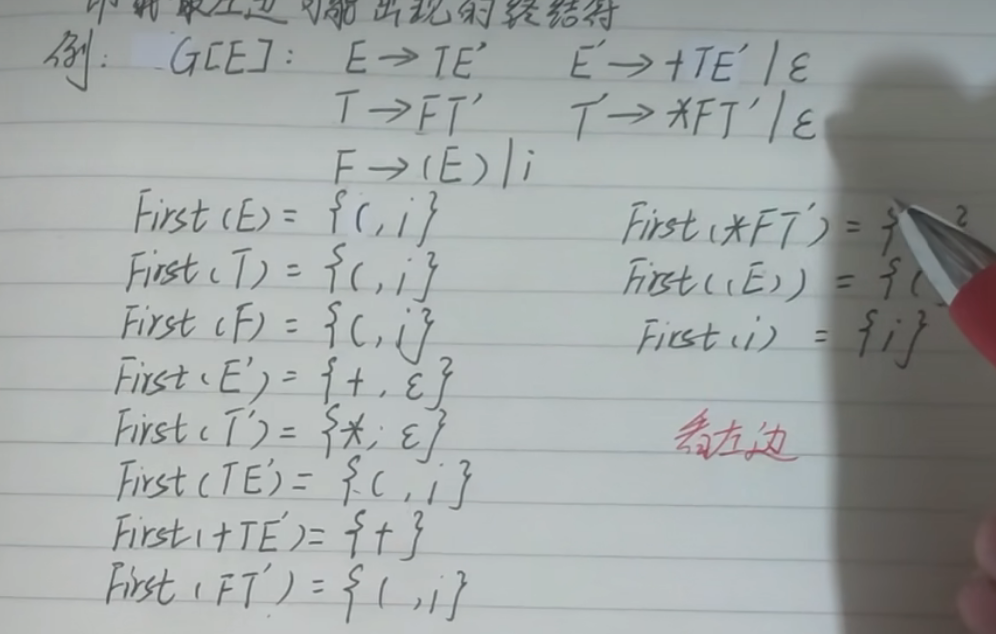 可能出现的终结符
例: G[E]: E → TE′ E′ → +TE′ | ε
T → FT′ T′ → *FT′ | ε
F → (E) | i
First(E) = {(, i}
First(T) = {(, i}
First(F) = {(, i}
First(E′) = {+, ε}
First(T′) = {*, ε}
First(TE′) = {(, i}
First(+TE′) = {+}
First(FT′) = {(, i}
First(*FT′) = {
First((E)) = {(
First(i) = {i}
看左边